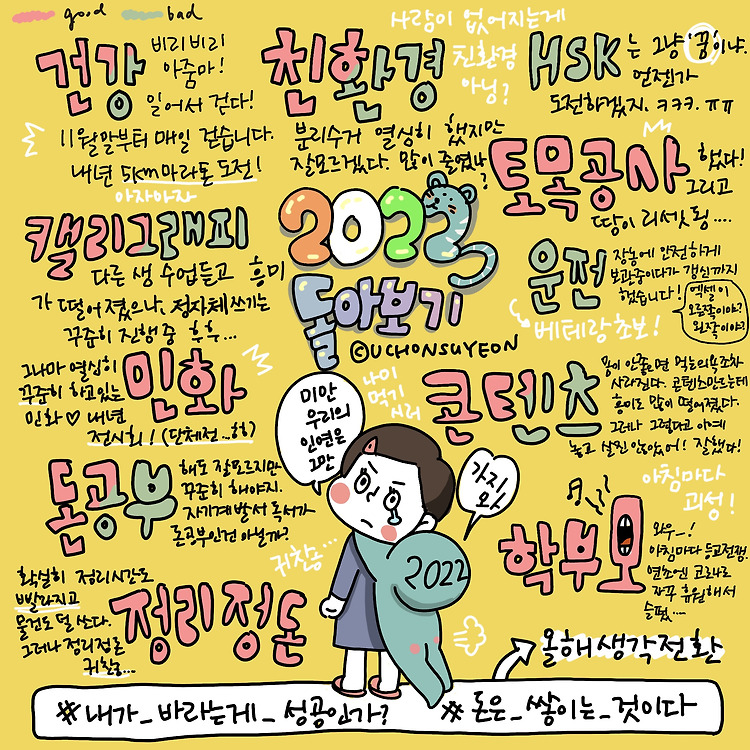 good bad
건강
비리비리
아줌마!
일어서 걷다!
11월말부터 매일 걷습니다.
내년 5km마라톤 도전!
아자아자
친환경
사람이 없어지는게
친환경
아닝?
분리수거 열심히 했지만
잘모르겠다. 많이 줄였나?
HSK는 그냥 '꿈'이냐.
언젠가
도전하겠지. ㅋㅋㅋ. ㅠㅠ
토목공사 했다!
그리고
땅이 리셋됭....
2022
돌아보기
©UCHONSUYEON
캘리그래피
다른 생 수업듣고 흥미
가 떨어졌으나, 정자체쓰기는
꾸준히 진행중 후후...
운전
장농에 안전하게
보관중이다가 갱신까지
했습니다!
엑셀이
오른쪽이야?
왼쪽이야?
베테랑초보!
민화
그나마 열심히
꾸준히 하고있는
민화♡ 내년
전시회! (단체전..허)
미안
우리의
인연은
그만
나이
먹기
시러
콘텐츠
몸이 안좋으면 먹는의욕조차
사라진다. 콘텐츠만드는데
흥미도 많이 떨어졌다.
그러나 그렇다고 아예
놓고 살진 않았어! 잘했다!
돈공부
해도 잘모르지만
꾸준히 해야지.
자기계발서 독서가
돈공부인건 아닐까?
가지
마
아침마다
괴성!
학부모
와우_!
아침마다 등교전쟁.
연초엔 코로나로
자꾸 휴원해서
슬펐...
귀찬숑...
2022
정리정돈
확실히 정리시간도
빨라지고
물건도 덜 쓴다.
그러나 정리접는
귀찬숑...
올해생각전환
#내가_바라는게_성공인가? #돈은_쌓이는_것이다